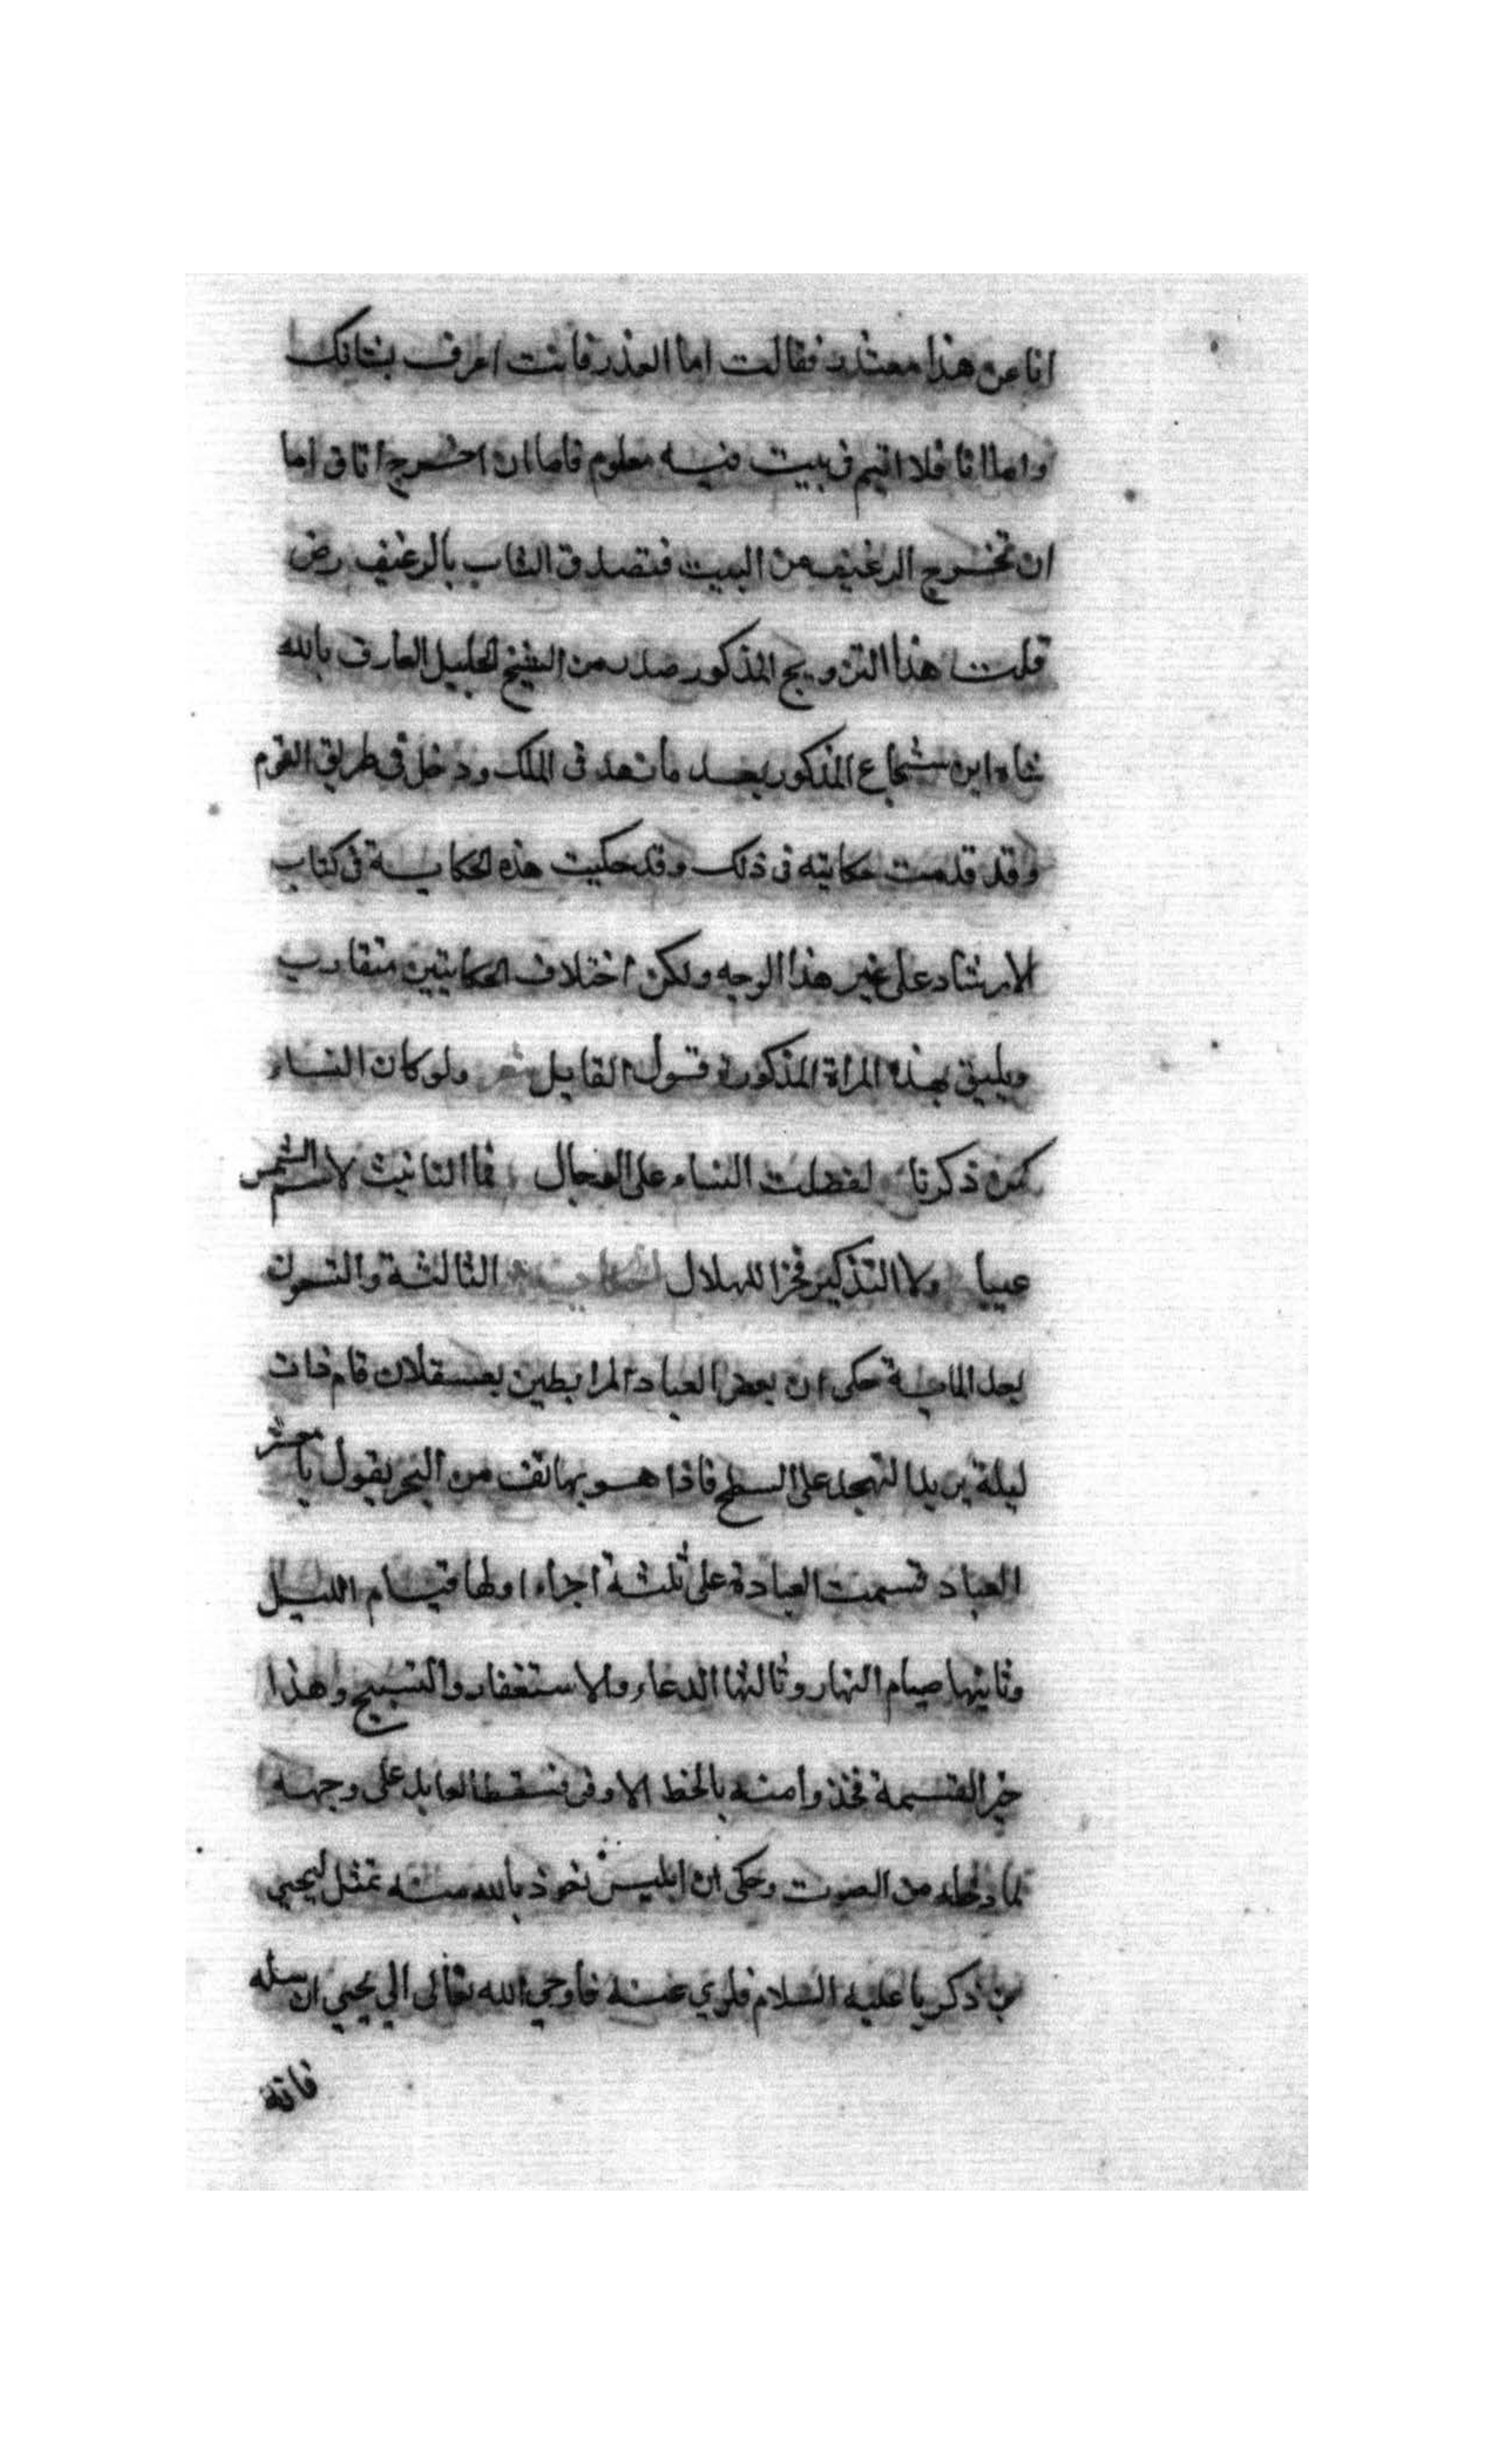 انا عن هذا معتذر فقالت اما العذر فانت اعرف بشانك
واما انا فلا اقيم في بيت فيه معلوم فاما ان اخرج انا واما
ان تخرج الرغيف من البيت فتصدق الشاب بالرغيف رض
قلت هذا التزويج المذكور صدر من الشيخ الجليل العارف بالله
شاه ابن شجاع المذكور بعد ما زهد في الملك ودخل في طريق القوم
وقد قدمت حكايته في ذلك وقد حكيت هذه الحكاية في كتاب
الارشاد على غير هذا الوجه ولكن اختلاف الحكايتين متقارب
ويليق بهذه المراة المذكورة قول القايل شعر ولو كان النساء
كمن ذكرنا لفضلت النساء على الرجال فما التانيث لاسم الشمس
عيبا ولا التذكير فخرا للهلال الحكاية الثالثة والتسعون
بعد الماية حكى ان بعض العباد المرابطين بعسقلان قام ذات
ليلة يريد التهجد على السطح فاذا هو بهاتف من البحر يقول يا معشر
العباد قسمت العبادة على ثلثة اجزاء اولها قيام الليل
وثانيها صيام النهار وثالثها الدعاء والاستغفار والتسبيح وهذا
خير القسمة فخذوا منه بالحظ الاوفى فسقط العابد على وجهه
لما دخله من الصوت وحكى ان ابليس نعوذ بالله منه تمثل ليحيى
بن ذكريا عليه السلام فلوي عنه فاوحي الله تعالى الي يحيى ان سله
فانه